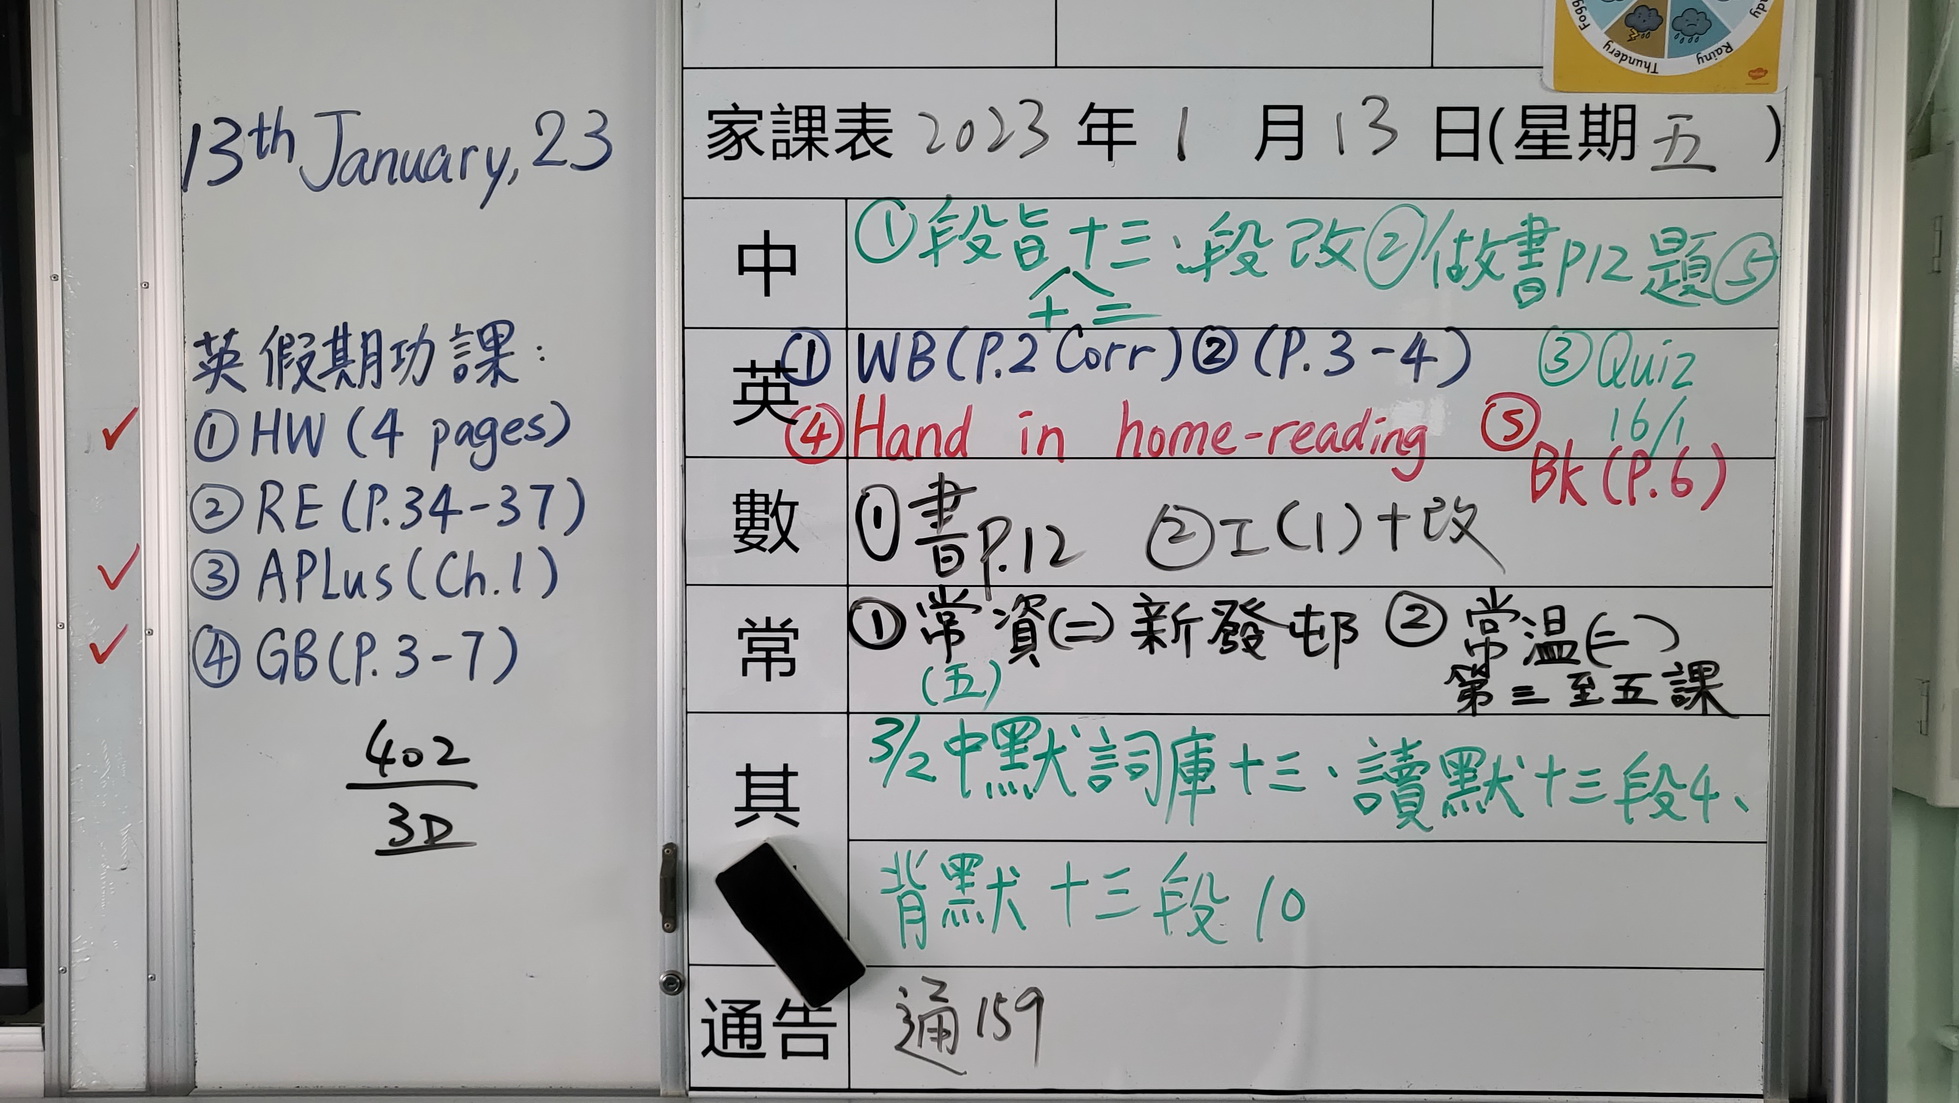 Foggy
Thundery
Rainy
13th January, 23
英假期功課:
① HW (4 pages)
② RE (P.34-37)
③ APLus (Ch.1)
④ GB (P.3-7)
402
3D
家課表 2023 年 1 月 13 日(星期 五 )
中 ①段旨十三、段改②做書P12題⑤
十二
英 ① WB (P.2 Corr) ② (P.3-4) ③ Quiz
16/1
④ Hand in home-reading ⑤
Bk (P.6)
數 ①書P.12 ②工(1)+改
常 ①常資(二)新發邨 ②常温(二)
(五) 第三至五課
其 3/2中默詞庫十三、讀默十三段4、
背默十三段10
通告 通159